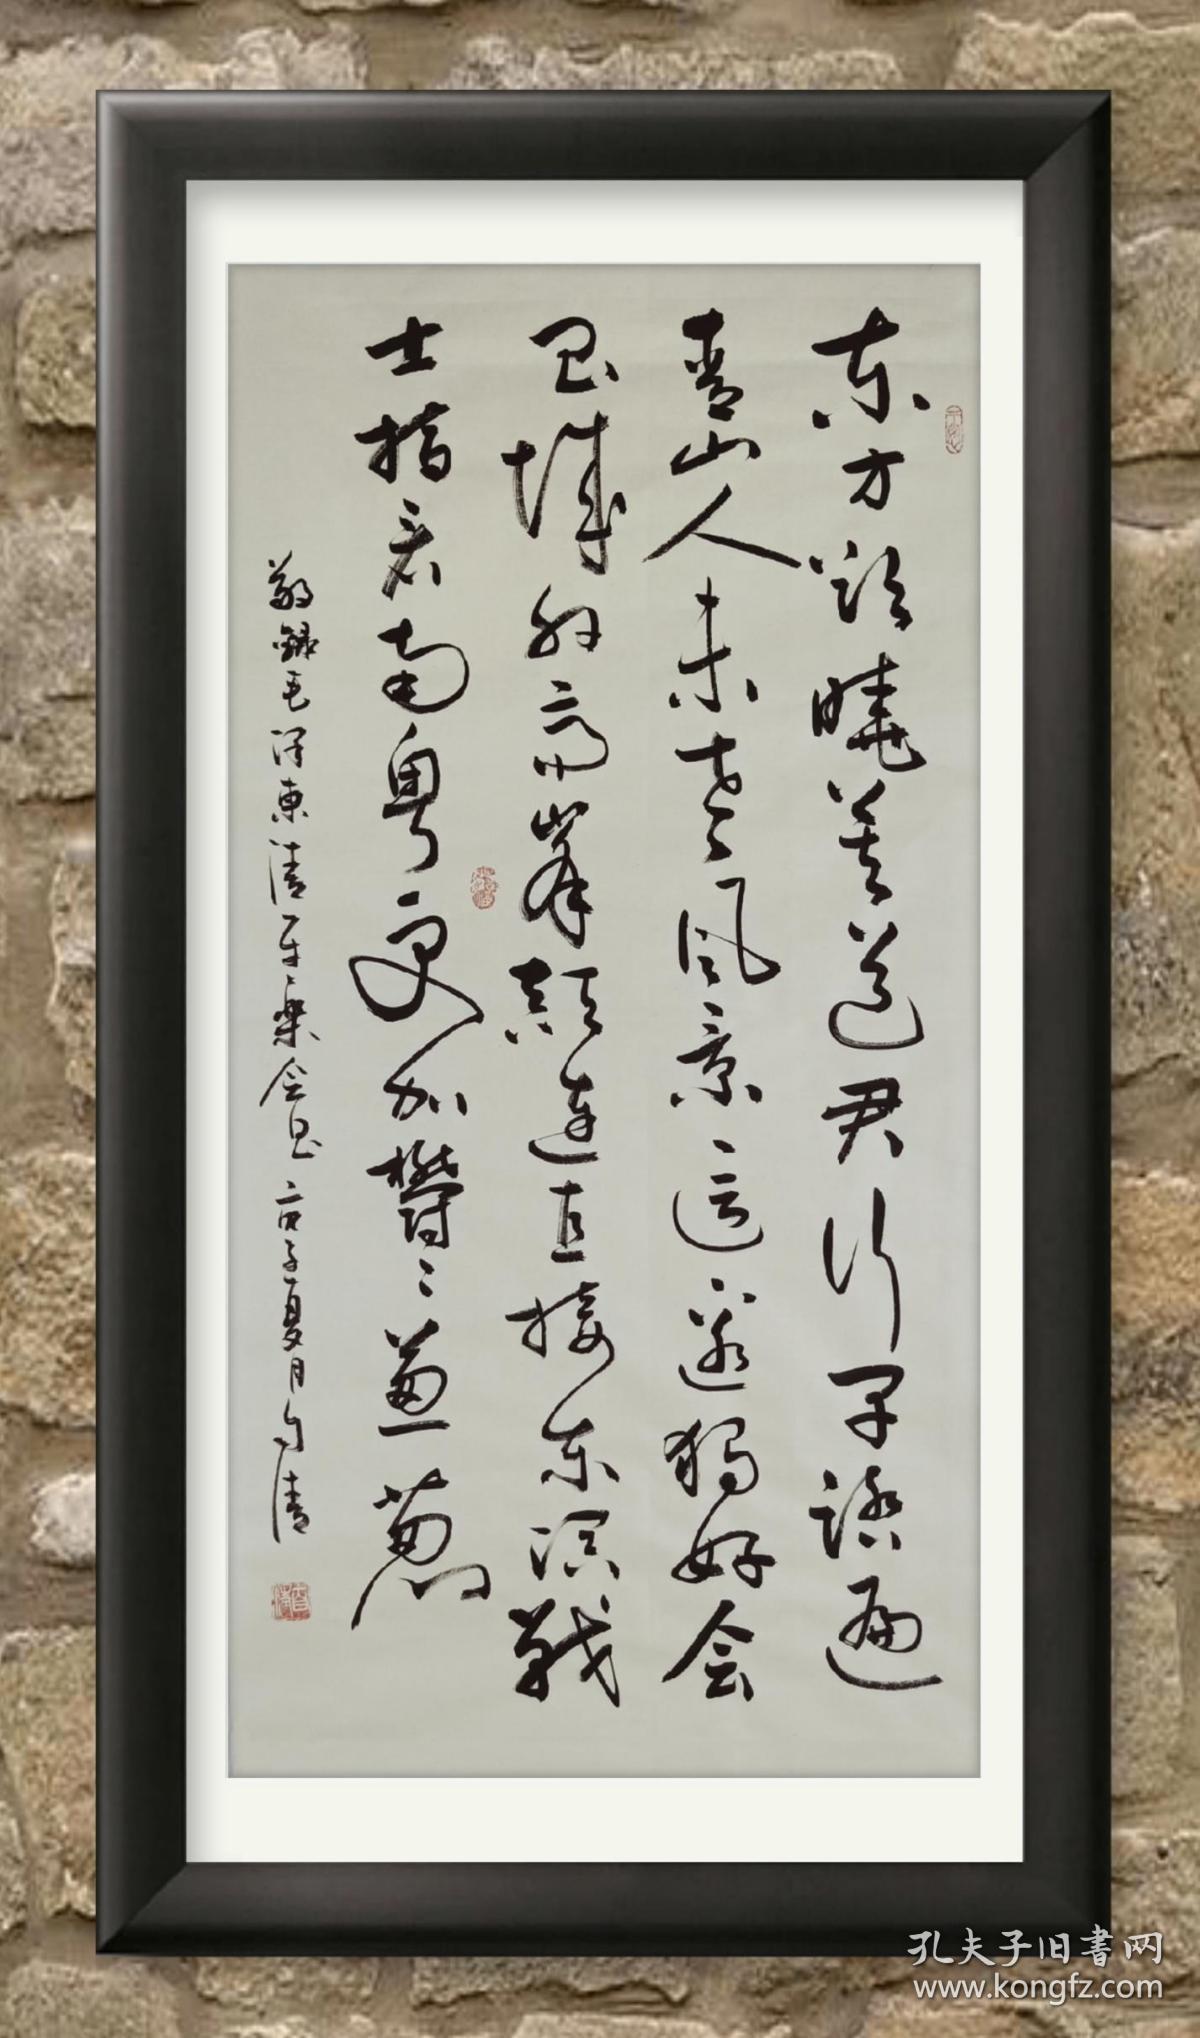 东方欲晓莫道君行早踏遍
青山人未老风景这边独好会
昌城外高峯颠连直接东溟战
士指看南粤更加郁〻葱葱
敬录毛泽東清平樂会昌 庚子夏月 清
孔夫子旧書网
www.kongfz.com